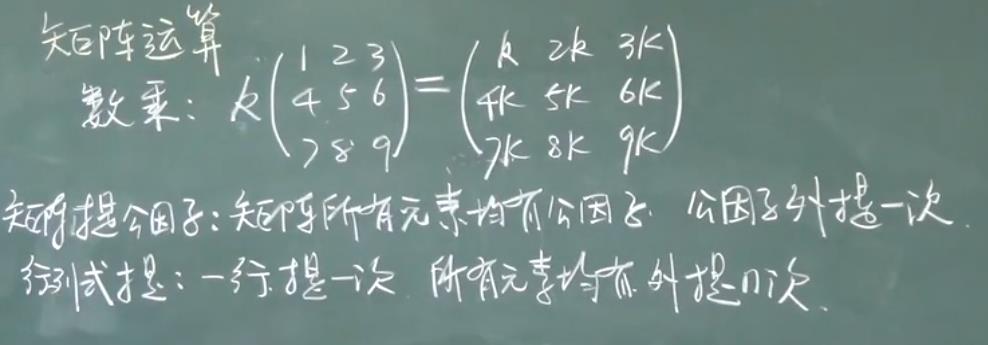 矩阵运算
数乘: k(1 2 3
4 5 6
7 8 9) = (k 2k 3k
4k 5k 6k
7k 8k 9k)
矩阵提公因子:矩阵所有元素均有公因子. 公因子外提一次.
行列式提:一行提一次. 所有元素均有 外提n次.